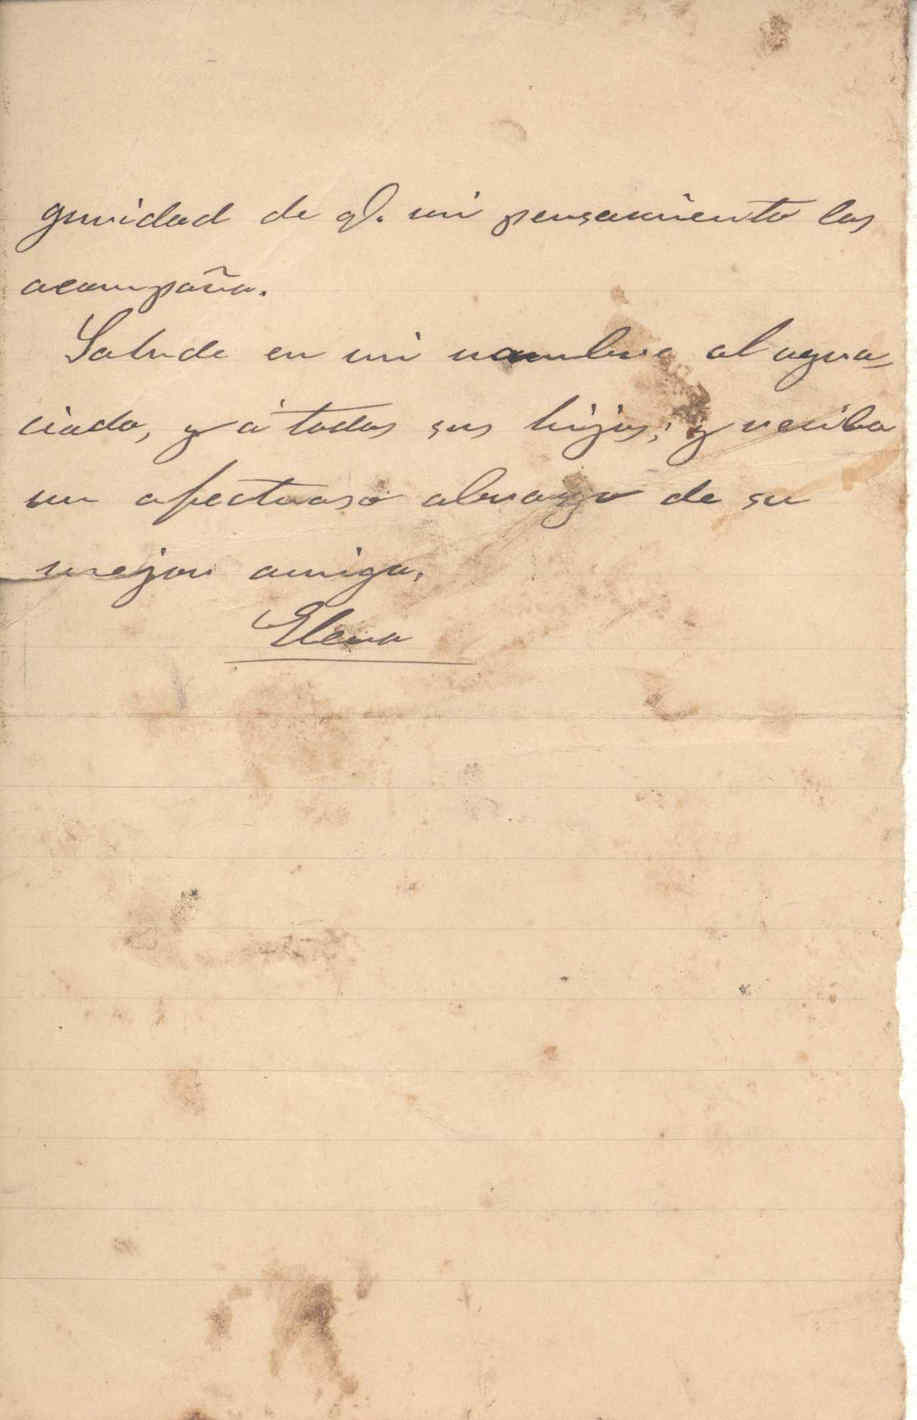 guridad de q. mi pensamiento los
acompaña.
Salude en mi nombre al agra-
ciado, y á todos sus hijos, y reciba
un afectuoso abrazo de su
mejor amiga,
Elena